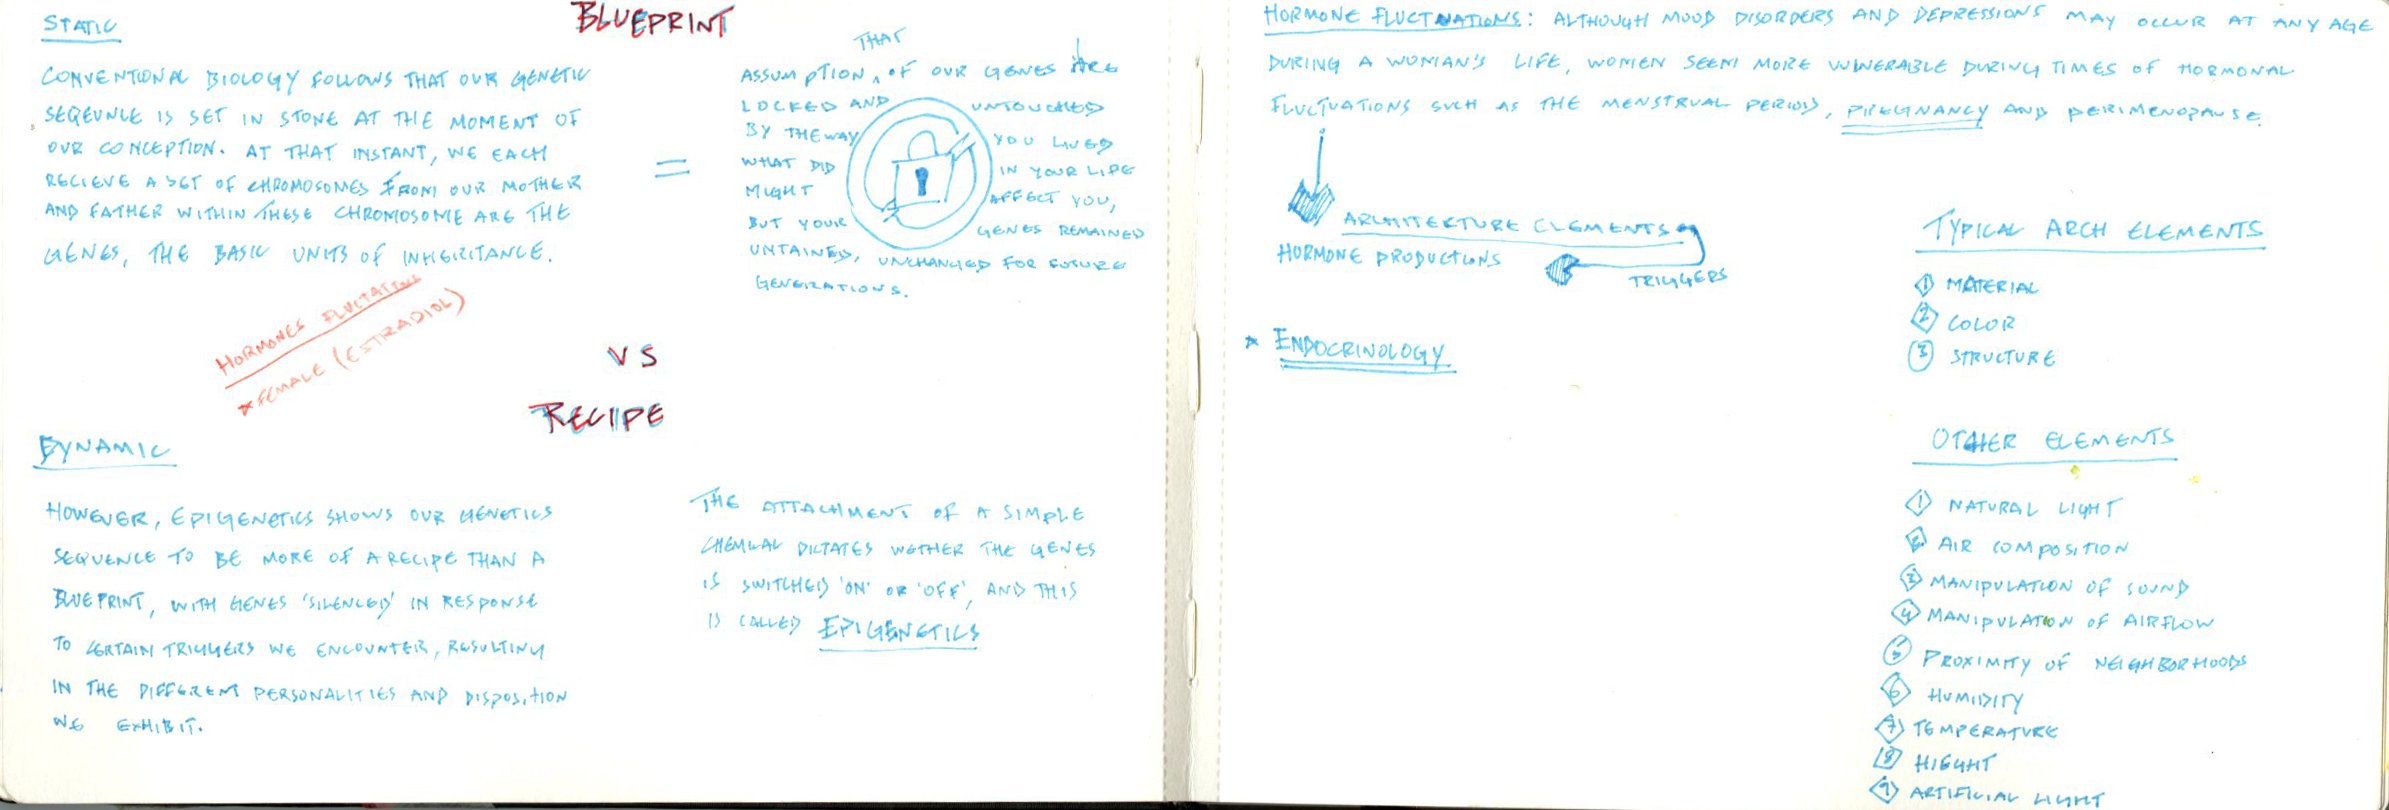 BLUEPRINT
STATIC
CONVENTIONAL BIOLOGY FOLLOWS THAT OUR GENETIC
SEQEUNCE IS SET IN STONE AT THE MOMENT OF
OUR CONCEPTION. AT THAT INSTANT, WE EACH
RECIEVE A SET OF CHROMOSOMES FROM OUR MOTHER
AND FATHER WITHIN THESE CHROMOSOME ARE THE
GENES, THE BASIC UNITS OF INHERITANCE.
=
THAT
ASSUMPTION, OF OUR GENES ARE
LOCKED AND UNTOUCHED
BY THE WAY YOU LIVED
WHAT DID IN YOUR LIFE
MIGHT AFFECT YOU,
BUT YOUR GENES REMAINED
UNTAINED, UNCHANGED FOR FUTURE
GENERATIONS.
HORMONES FLUCTATIONS
* FEMALE (ESTRADIOL)
VS
RECIPE
DYNAMIC
HOWEVER, EPIGENETICS SHOWS OUR GENETICS
SEQUENCE TO BE MORE OF A RECIPE THAN A
BLUEPRINT, WITH GENES 'SILENCED' IN RESPONSE
TO CERTAIN TRIGGERS WE ENCOUNTER, RESULTING
IN THE DIFFERENT PERSONALITIES AND DISPOSITION
WE EXHIBIT.
THE ATTACHMENT OF A SIMPLE
CHEMICAL DICTATES WETHER THE GENES
IS SWITCHED 'ON' OR 'OFF', AND THIS
IS CALLED EPIGENETICS
HORMONE FLUCTUATIONS: ALTHOUGH MOOD DISORDERS AND DEPRESSIONS MAY OCCUR AT ANY AGE
DURING A WOMAN'S LIFE, WOMEN SEEM MORE VULNERABLE DURING TIMES OF HORMONAL
FLUCTUATIONS SUCH AS THE MENSTRUAL PERIODS, PREGNANCY AND PERIMENOPAUSE.
ARCHITEKTURE ELEMENTS
HORMONE PRODUCTIONS
TRIGGERS
* ENDOCRINOLOGY
TYPICAL ARCH ELEMENTS
1 MATERIAL
2 COLOR
3 STRUCTURE
OTHER ELEMENTS
1 NATURAL LIGHT
2 AIR COMPOSITION
3 MANIPULATION OF SOUND
4 MANIPULATION OF AIRFLOW
5 PROXIMITY OF NEIGHBORHOODS
6 HUMIDITY
7 TEMPERATURE
8 HIEGHT
9 ARTIFICIAL LIGHT